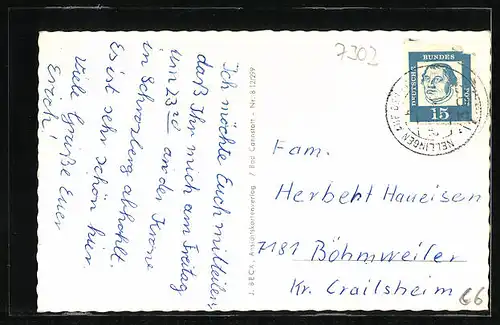 7303
Ich möchte Euch mitteilen,
daß Ihr mich am Freitag
um 23²⁰ an der Krone
in Schrozberg abholt.
Es ist sehr schön hier.
Viele Grüße Euer
Erich!
J. BECK, Ansichtskartenverlag / Bad Cannstatt - Nr. B 12/299
DEUTSCHE
BUNDES
POST
15
NELLINGEN AUF DER
Fam.
Herbert Haueisen
7181 Böhmweiler
Kr. Crailsheim
66